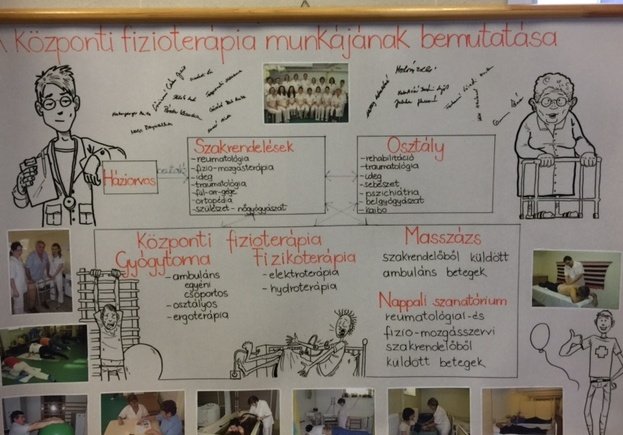 A Központi fizioterápia munkájának bemutatása
Háziorvos
beutaló
Szakrendelések
- reumatológia
- fizio-mozgásterápia
- ideg
- traumatológia
- fül-orr-gége
- ortopédia
- szülészet-nőgyógyászat
Osztály
- rehabilitáció
- traumatológia
- ideg
- sebészet
- pszichiátria
- belgyógyászat
- kaibo
Központi fizioterápia
Gyógytorna
- ambuláns
egyéni
csoportos
- osztályos
- ergoterápia
Fizikoterápia
- elektroterápia
- hydroterápia
Masszázs
szakrendelőből küldött
ambuláns betegek
Nappali szanatórium
reumatológiai-és
fizio-mozgásszervi
szakrendelőből
küldött betegek